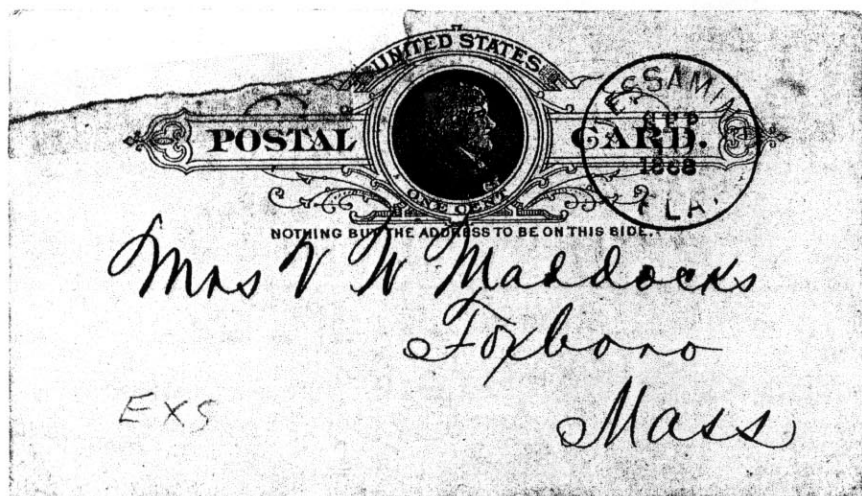 UNITED STATES
POSTAL CARD.
ONE CENT
NOTHING BUT THE ADDRESS TO BE ON THIS SIDE.
ESSAMIN
SEP
FLA.
Mrs V W Maddocks
Foxboro
Mass
EXS